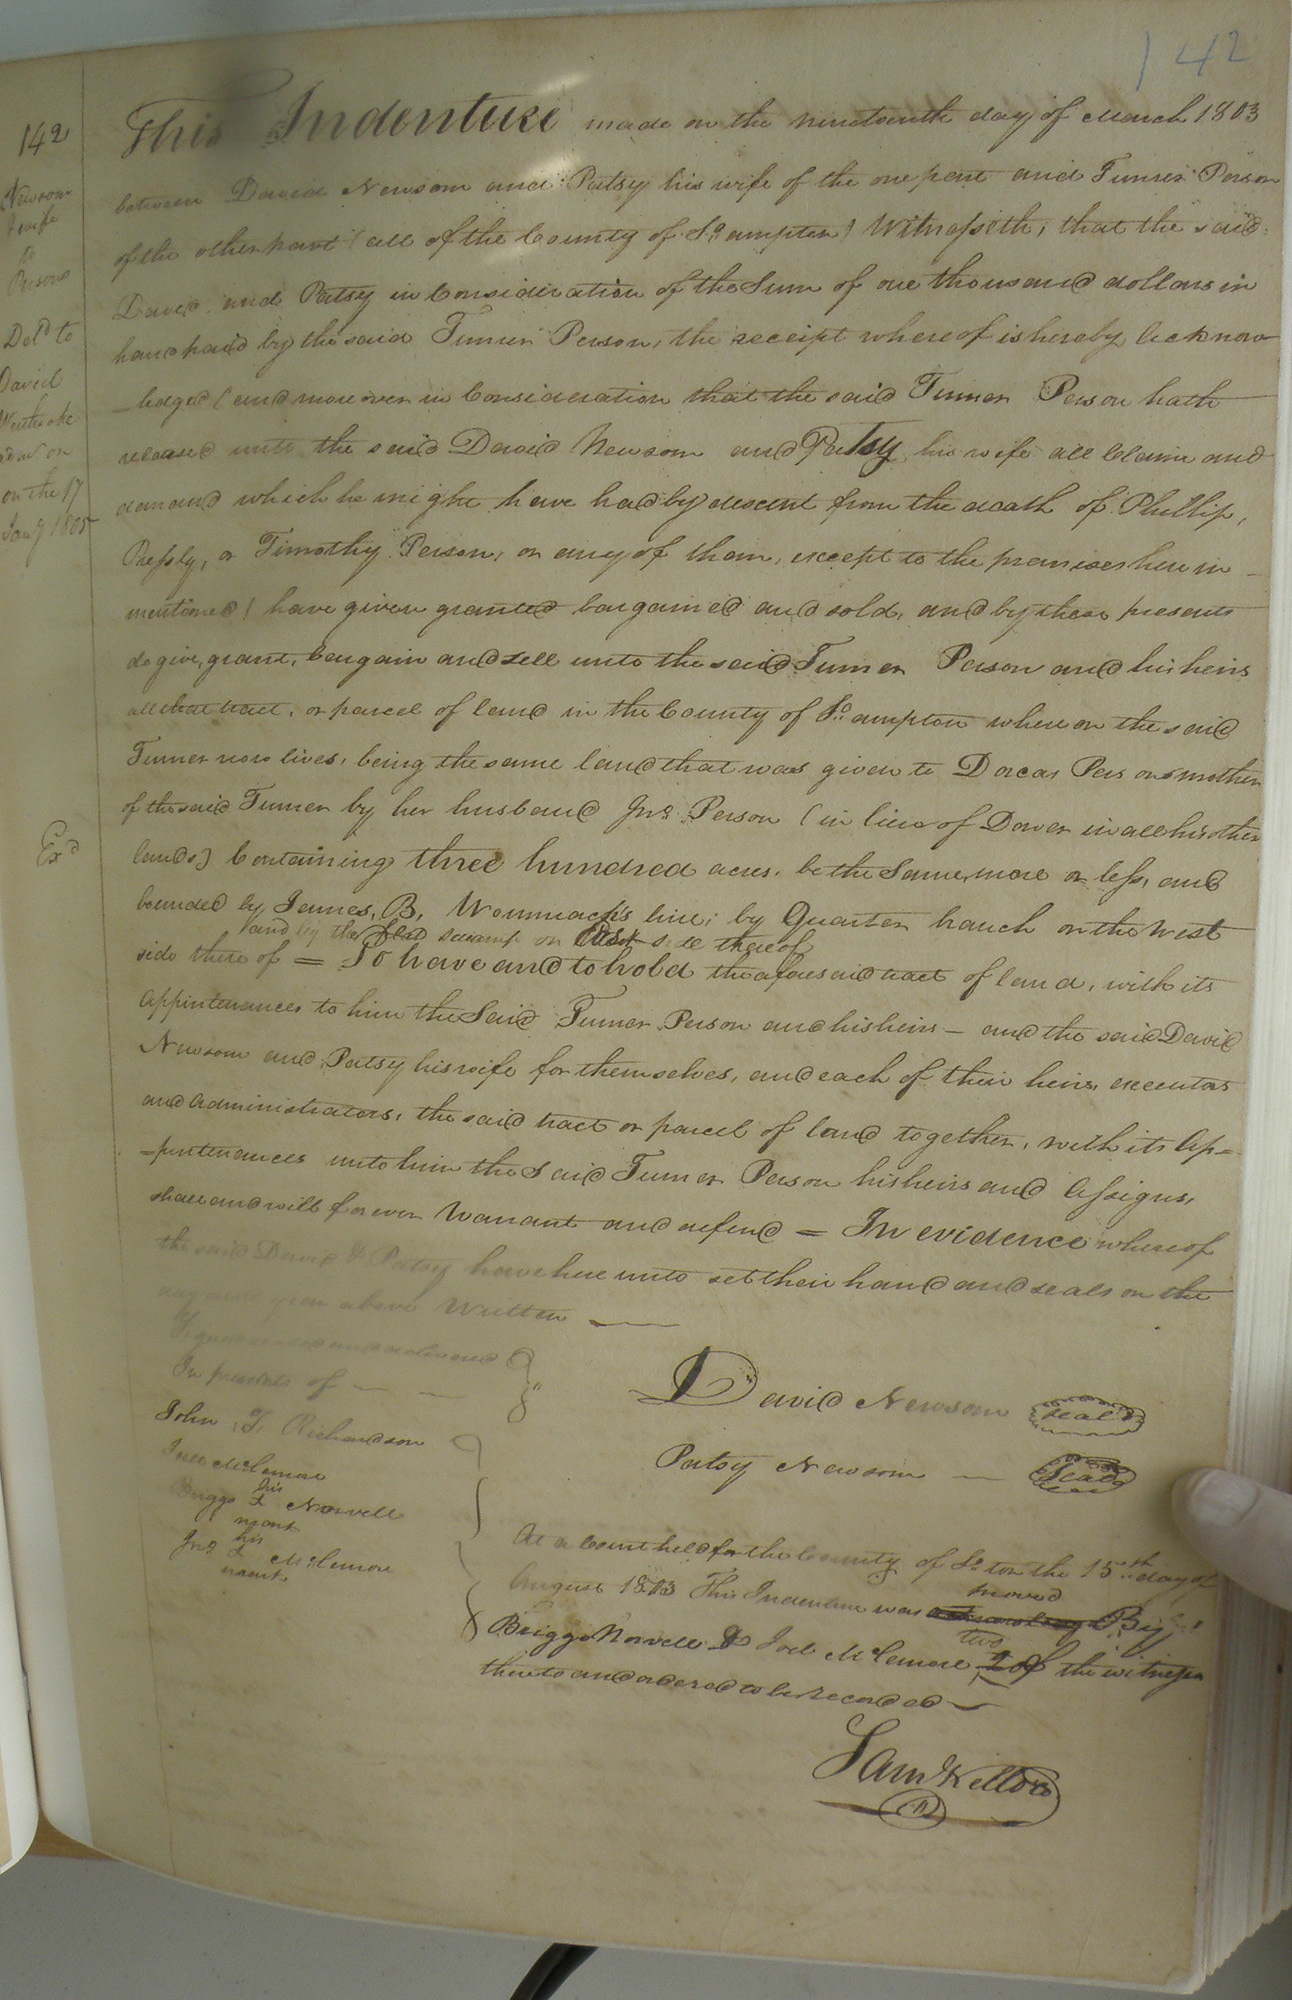 142
142
Newsom
& wife
to
Person
Del.d to
David
on the 17
Jany 1805
Ex.d
This Indenture made on the nineteenth day of March 1803
between David Newsom and Patsy his wife of the one part and Turner Person
of the other part (all of the County of So.ampton) Witnesseth, that the said
David and Patsy in Consideration of the Sum of one thousand dollars in
hand paid by the said Turner Person, the receipt whereof is hereby acknow
-ledged (and moreover in Consideration that the said Turner Person hath
released unto the said David Newsom and Patsy his wife all Claim and
demand which he might have had by descent from the death of Phillip,
Presly, or Timothy Person, or any of them, except to the premises herein
mentioned) have given granted bargained and sold, and by these presents
do give, grant, bargain and sell unto the said Turner Person and his heirs
all that tract, or parcel of land in the County of So.ampton where on the said
Turner now lives, being the same land that was given to Dorcas Person mother
of the said Turner by her husband Jno. Person (in lieu of Dower in all his other
lands) Containing three hundred acres, be the Same, more or less, and
bounded by James, B, Wommack's line; by Quarter branch on the West
and by the swamp on East side thereof
side there of = To have and to hold the aforesaid tract of land, with its
Appintenances to him the Said Turner Person and his heirs - and the said David
Newsom and Patsy his wife for themselves, and each of their heirs, executors
and administrators, the said tract or parcel of land together, with its Ap=
=purtenances unto him the Said Turner Person his heirs and Assigns,
shall and will forever Warrant and defend = In evidence whereof
the said David & Patsy have here unto set their hand and seals on the
day and year above Written
Signed sealed and delivered
In presents of
John T. Richardson
Joel McLemore
his
Briggs + Norvell
mark
his
Jno. + McLemore
mark
David Newsom seal
Patsy Newsom Seal
At a Court held for the County of So.ton the 15.th day of
August 1803 This Indenture was proved By
Briggs Norvell & Joel McLemore two of the witnesses
thereto and ordered to be recorded
Sam Kello